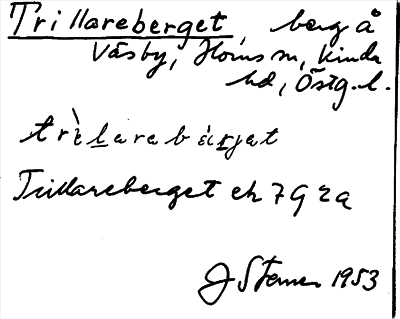 Trillareberget, berg å
Väsby, Horns sn, Kinda
hd, Östg. l.
trìlarebárjat
Trillareberget ek 7 G 2a
J Sterner 1953